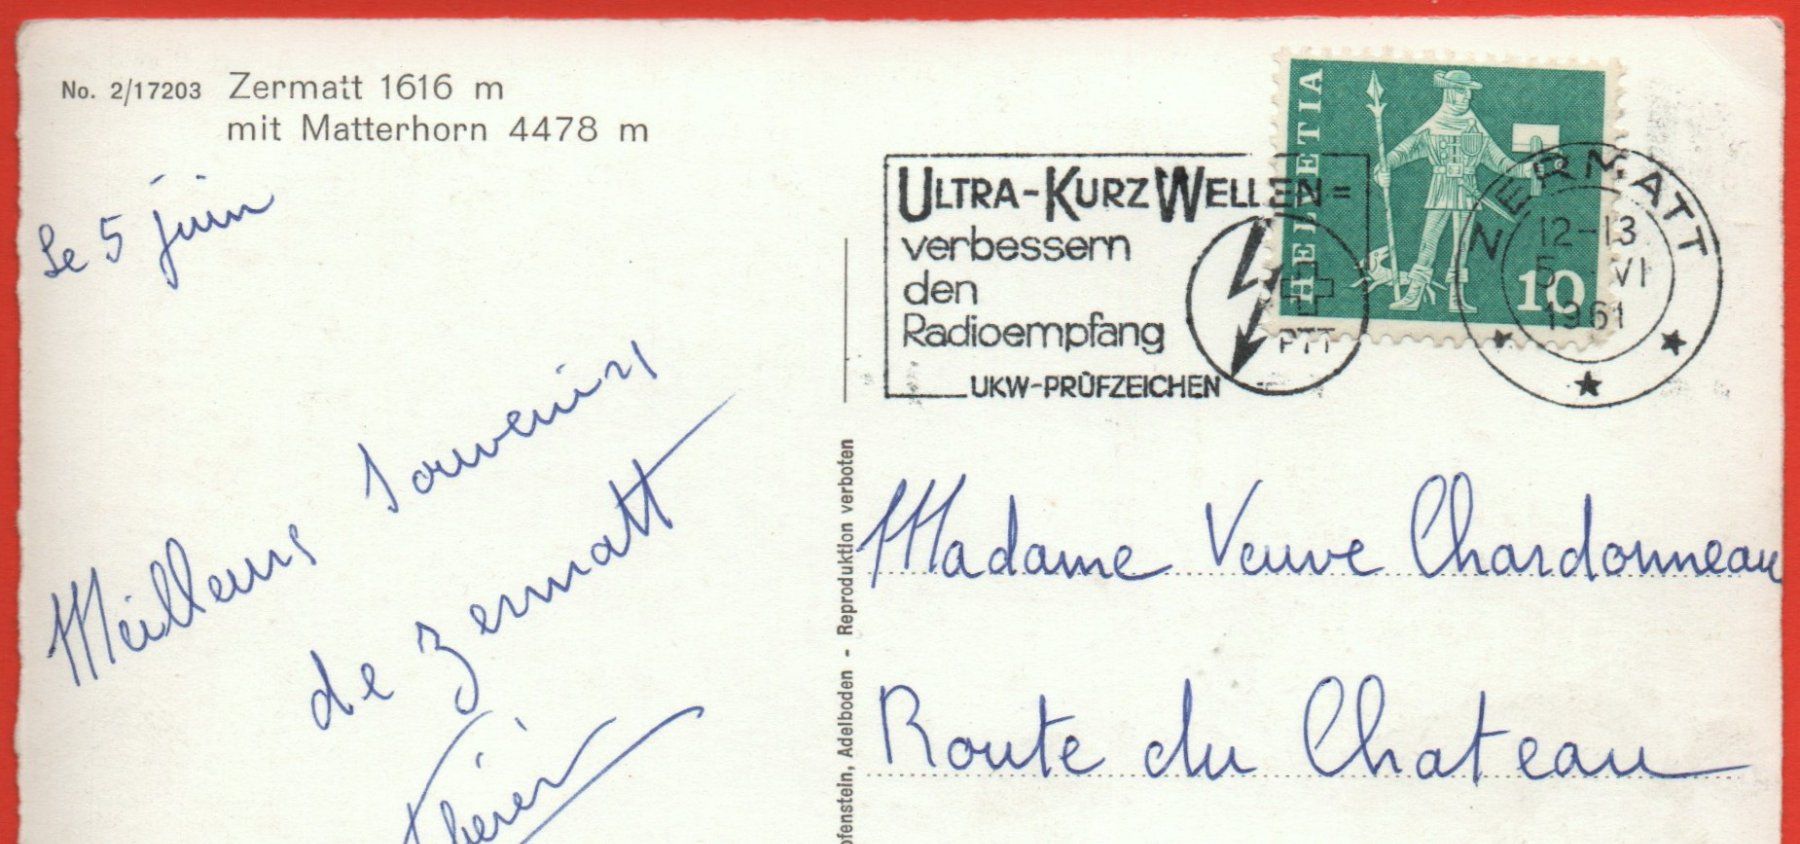 No. 2/17203 Zermatt 1616 m
mit Matterhorn 4478 m
Le 5 juin
Meilleurs souvenirs
de Zermatt
HELVETIA
10
ULTRA-KURZ WELLEN=
verbessern
den
Radioempfang
UKW-PRÜFZEICHEN
PTT
ZERMATT
12-13
5 VI
1961
ofenstein, Adelboden - Reproduktion verboten
Madame Veuve Chardonneau
Route du Chateau